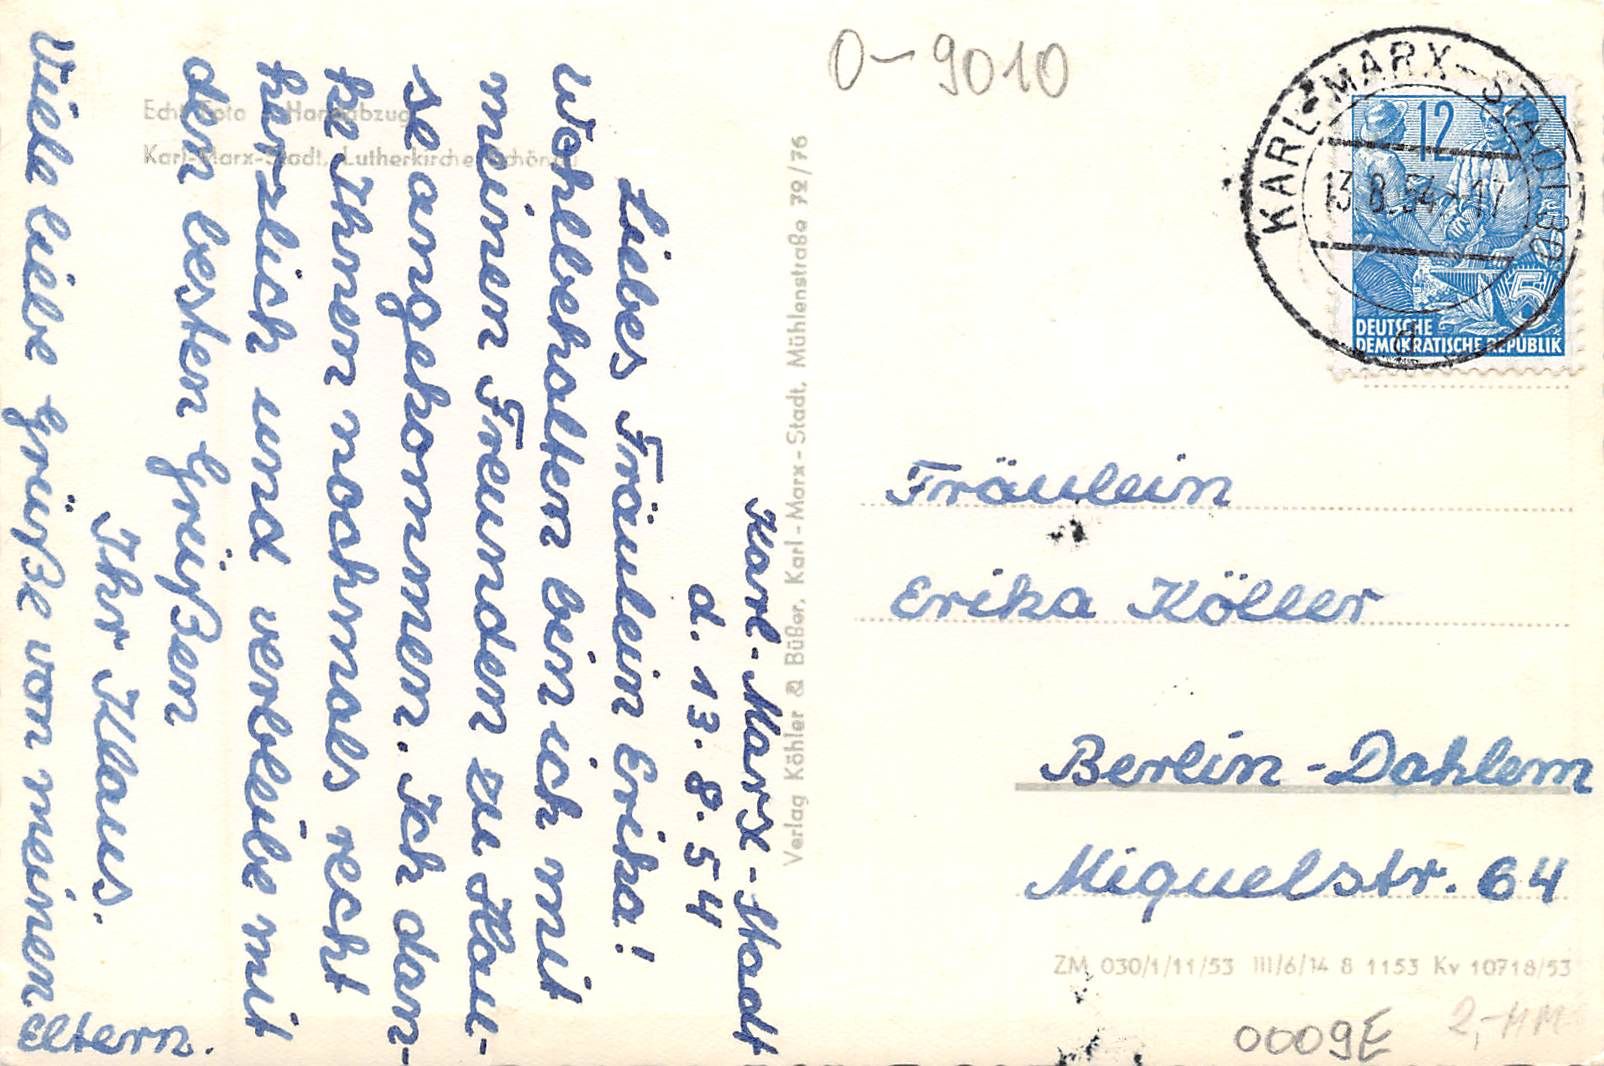 Echt Foto Handabzug
Karl-Marx-Stadt, Lutherkirche
Karl-Marx-Stadt
d. 13.8.54
Liebes Fräulein Erika!
Wohlbehalten bin ich mit
meinen Freunden zu Hau-
se angekommen. Ich dan-
ke Ihnen nochmals recht
herzlich und verbleibe mit
den besten Grüßen
Ihr Klaus.
Viele liebe Grüße von meinen
Eltern.
Verlag Köhler & Büßer, Karl-Marx-Stadt, Mühlenstraße 72/76
O-9010
KARL-MARX-STADT
13.8.54-17
12
5
DEUTSCHE
DEMOKRATISCHE REPUBLIK
Fräulein
Erika Köller
Berlin-Dahlem
Miquelstr. 64
ZM 030/1/11/53 III/6/14 8 1153 Kv 10718/53
0009E